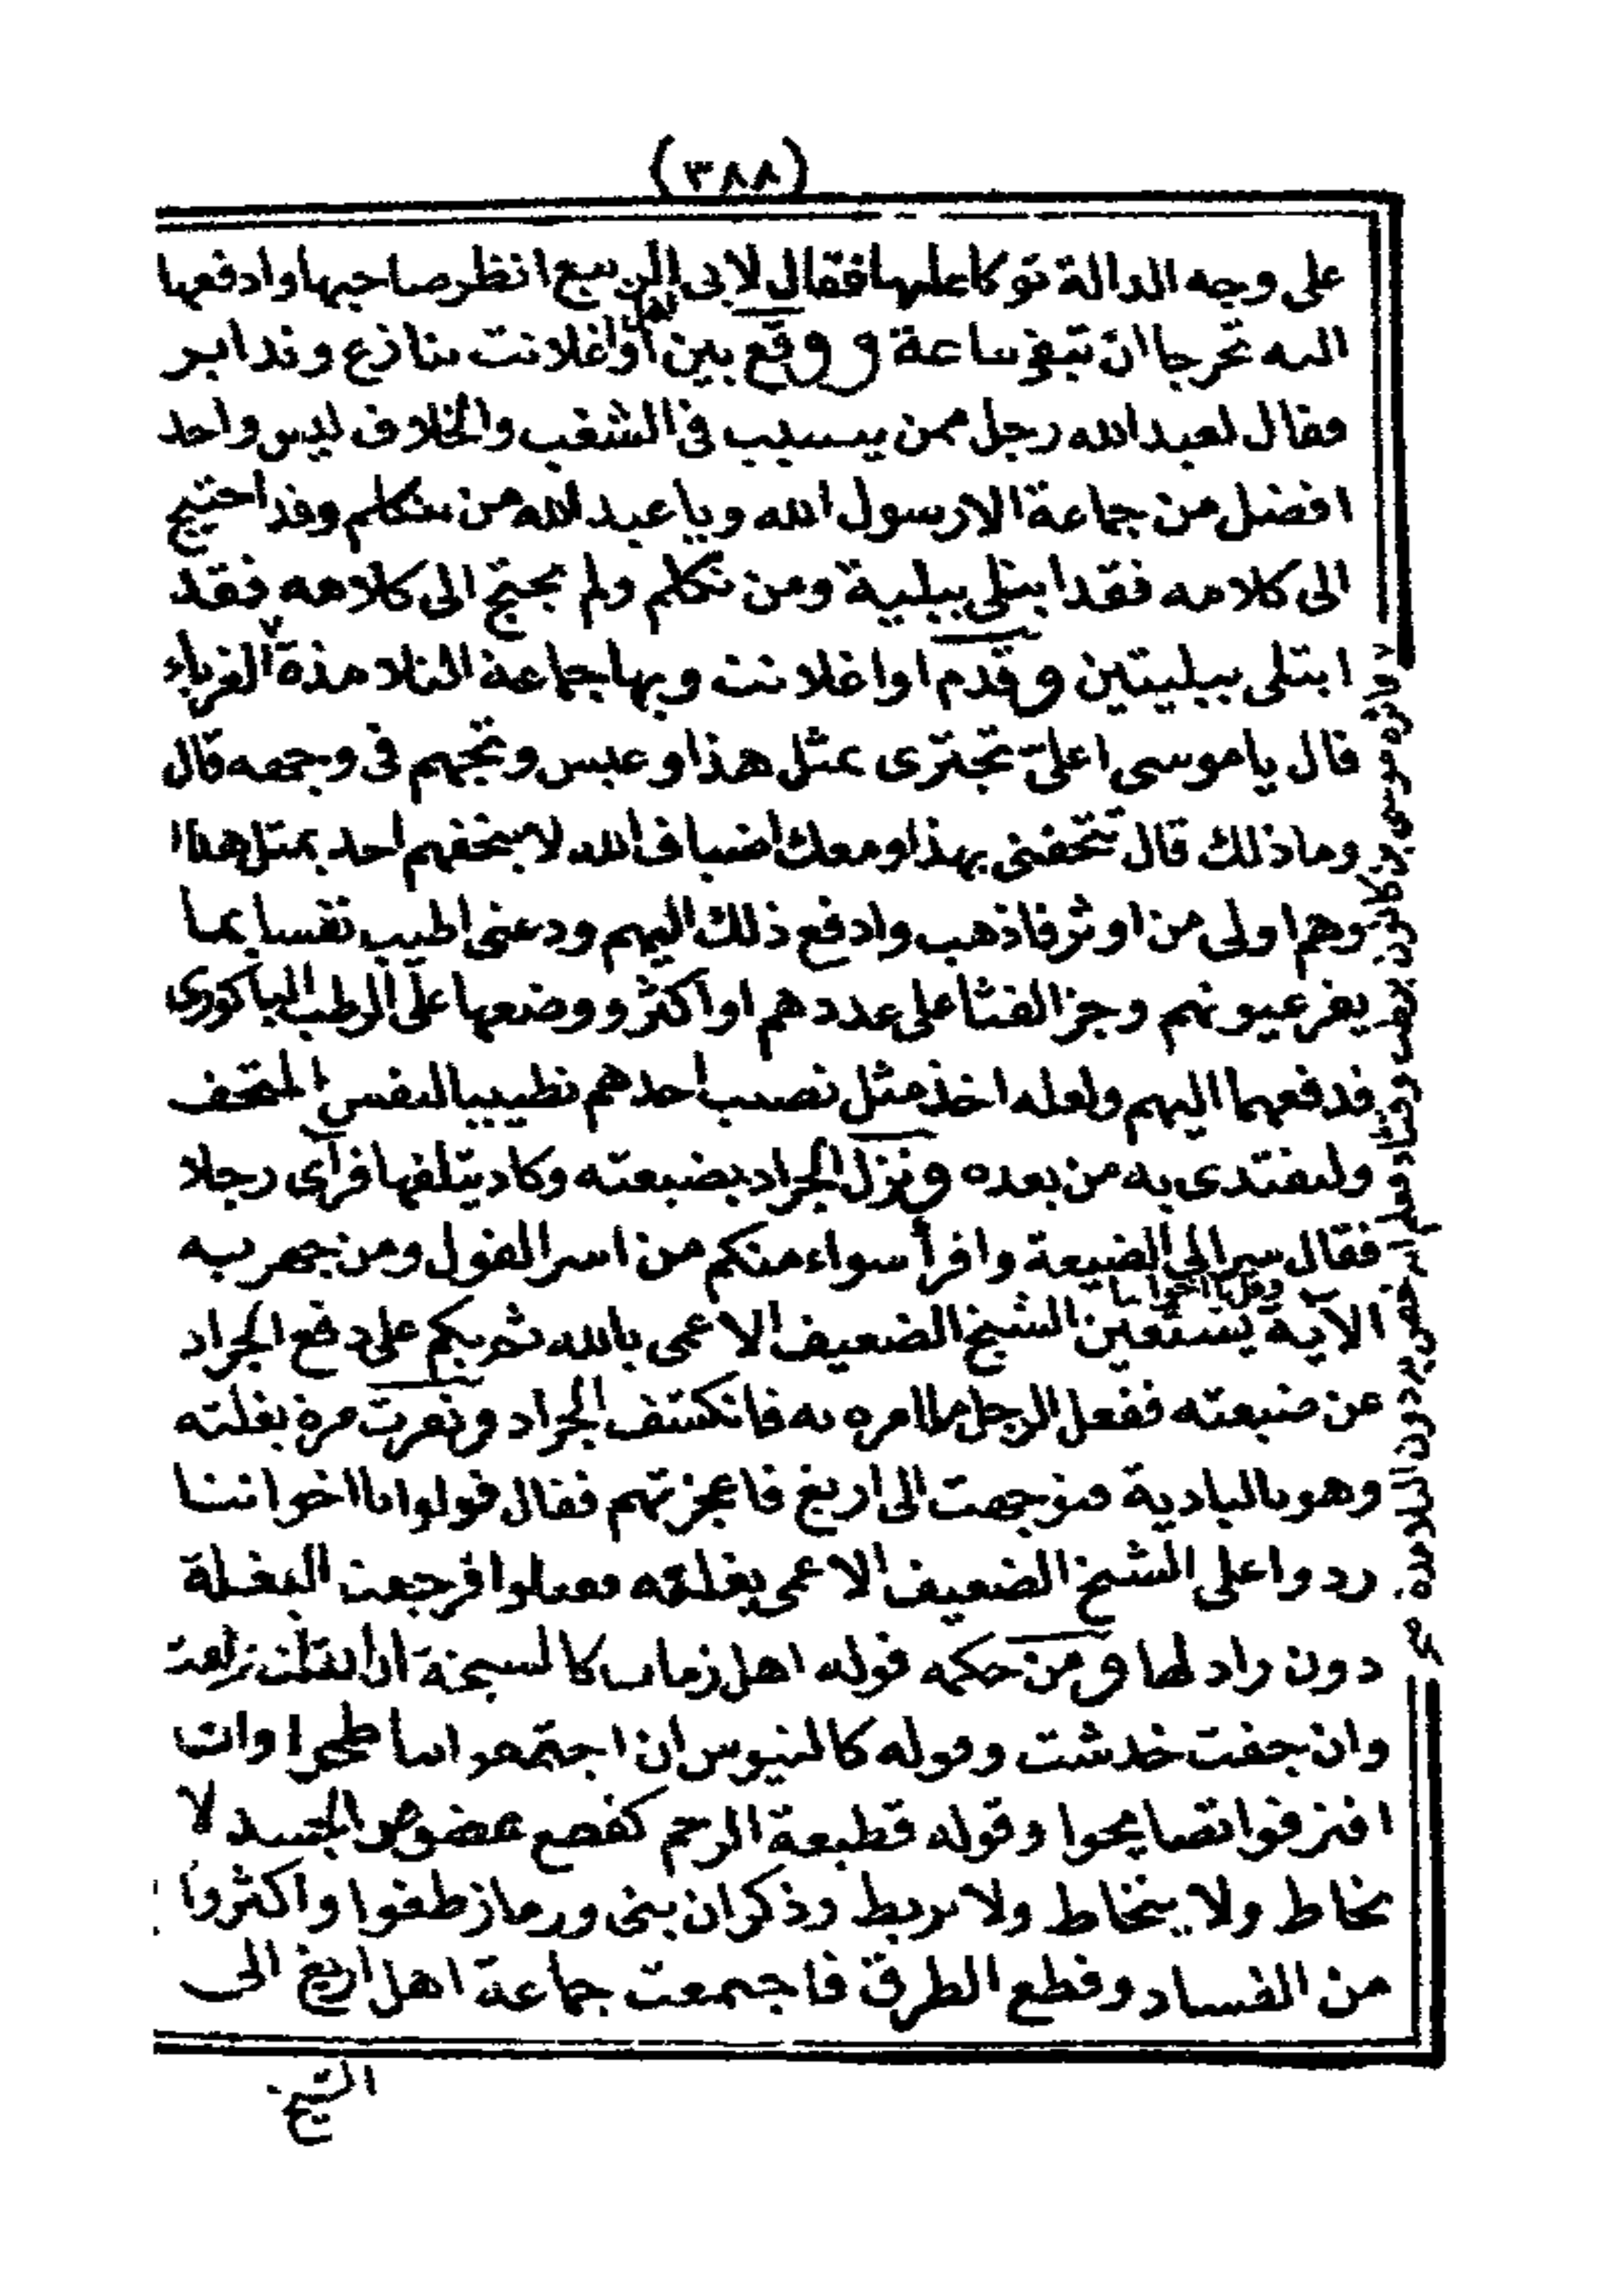 (٣٨٨)
على وجه الدالة توكا عليها فقال لابى الربيع انظر صاحبها وادفعها
اليه تحرجا ان تبقى ساعة ووقع بين اهل اواغلانت تنازع وتدابر
فقال لعبد الله رجل ممن يسبب فى الشغب والخلاف ليس واحد
افضل من جماعة الا رسول الله ويا عبد الله من يتكلم وقد احتيج
الى كلامه فقد ابتلى ببلية ومن تكلم ولم يحتج الى كلامه فقد
ابتلى ببليتين وقدم اواغلانت وبها جماعة التلامذة الغرباء
قال يا موسى اعلىّ تجترى بمثل هذا وعبس وتجهم فى وجهه قال
وما ذلك قال تتحفنى بهذا ومعك اضياف الله لا يتحفهم احد بمثل هذا
وهم اولى من اوثر فاذهب وادفع ذلك اليهم ودعنى اطيب نفسا بما
يقر عيونهم وجز القثا على عددهم او اكثر ووضعها على الرطب الباكورى
فدفعهما اليهم ولعله اخذ مثل نصيب احدهم تطييبا لنفس المتحف
وليقتدى به من بعده ونزل الجراد بضيعته وكاد يتلفها فرأى رجلا
فقال سر الى الضيعة واقرأ سواء منكم من اسر القول ومن جهر به
الآية وقل يا اخواننا يستعين الشيخ الضعيف الاعمى بالله ثم بكم على دفع الجراد
عن ضيعته ففعل الرجل ما امره به فانكشف الجراد ونفرت مرة بغلته
وهو بالبادية فتوجهت الى اريغ فاعجزتهم فقال قولوا يا اخواننا
ردوا على الشيخ الضعيف الاعمى بغلته ففعلوا فرجعت البغلة
دون راد لها ومن حكمه قوله اهل زماننا كالسبخة ان ابتلت زلقت
وان جفت خدشت وقوله كالتيوس ان اجتمعوا تناطحوا وان
افترقوا تصايحوا وقوله قطيعة الرحم كقطع عضو من الجسد لا
يخاط ولا يتخاط ولا يربط وذكر ان بنى ورماز طغوا واكثروا
من الفساد وقطع الطرق فاجتمعت جماعة اهل اريغ الى
الشيخ